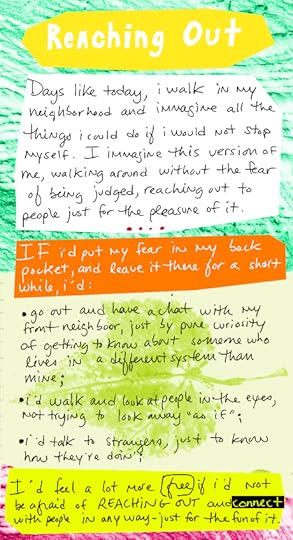 Reaching Out
Days like today, i walk in my
neighborhood and immagine all the
things i could do if i would not stop
myself. I immagine this version of
me, walking around without the fear
of being judged, reaching out to
people just for the pleasure of it.
IF i'd put my fear in my back
pocket, and leave it there for a short
while, i'd:
• go out and have a chat with my
front neighboor, just by pure curiosity
of getting to know about someone who
lives in a different system than
mine;
• i'd walk and look at people in the eyes,
not trying to look away "as if";
• i'd talk to strangers, just to know
how they're doin';
I'd feel a lot more free if i'd not
be afraid of REACHING OUT and connect
with people in any way - just for the fun of it.